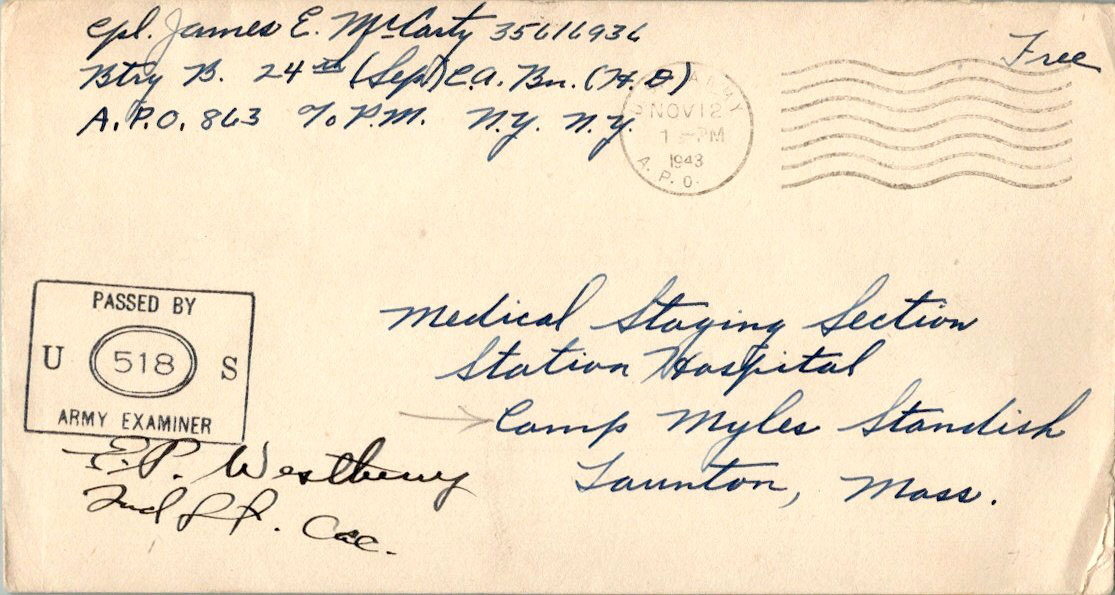 Cpl. James E. McCarty 35616936
Free
Btry B. 24th (Sep) C.A. Bn. (H.D)
A.P.O. 863 c/o P.M. N.Y. N.Y.
ARMY
NOV 12
1 PM
1943
A.P.O.
PASSED BY
U 518 S
ARMY EXAMINER
Medical Staging Section
Station Hospital
Camp Myles Standish
Taunton, Mass.
E.P. Westbury
2nd Lt. CAC.